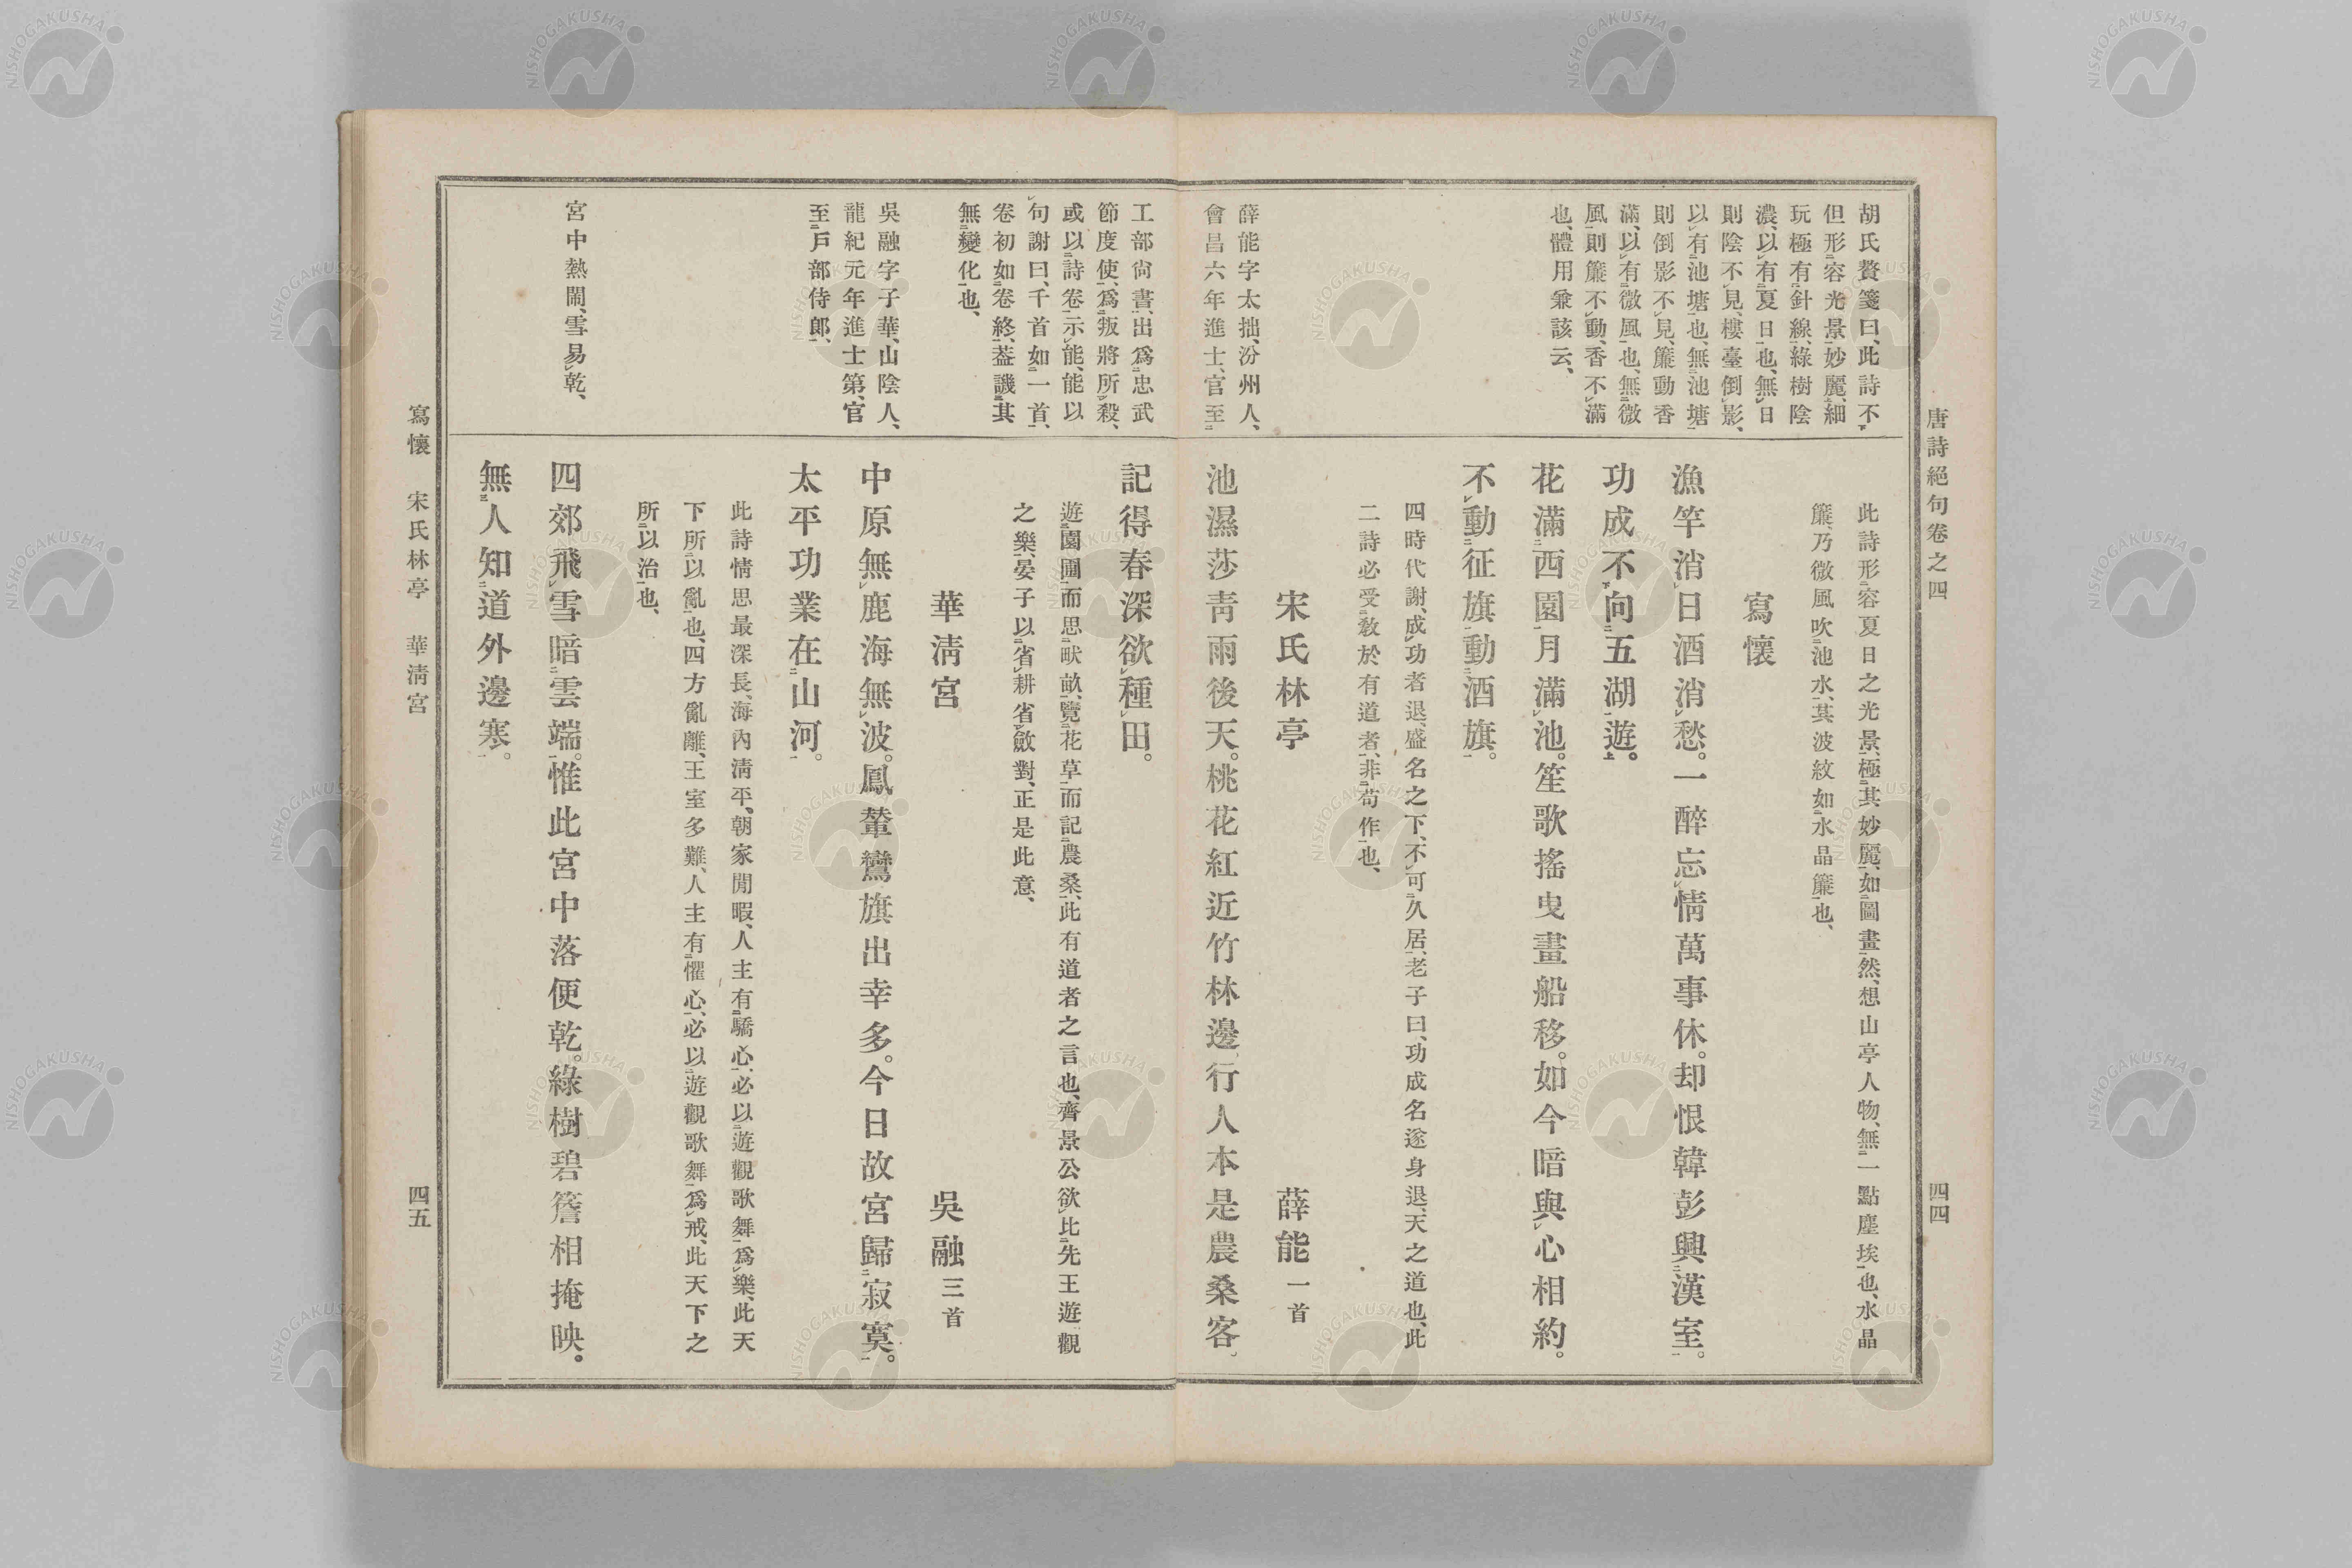 唐詩絕句卷之四
四四
胡氏贅箋曰、此詩不
但形容光景妙麗、細
玩極有針線、綠樹陰
濃、以有夏日也、無日
則陰不見、樓臺倒影、
以有池塘也、無池塘
則倒影不見、簾動香
滿、以有微風也、無微
風則簾不動、香不滿
也、體用兼該云、
薛能字太拙、汾州人、
會昌六年進士、官至
此詩形容夏日之光景、極其妙麗、如圖畫然、想山亭人物、無一點塵埃也、水晶
簾、乃微風吹池水、其波紋如水晶簾也、
寫懷
漁竿消日酒消愁。一醉忘情萬事休。却恨韓彭興漢室。
功成不向五湖遊。
花滿西園月滿池。笙歌搖曳畫船移。如今暗與心相約。
不動征旗動酒旗。
四時代謝、成功者退、盛名之下、不可久居、老子曰、功成名遂身退、天之道也、此
二詩必受敎於有道者、非苟作也、
宋氏林亭
薛能一首
池濕莎靑雨後天。桃花紅近竹林邊、行人本是農桑客、
工部尙書、出爲忠武
節度使、爲叛將所殺、
或以詩卷示能、能以
句謝曰、千首如一首、
卷初如卷終、蓋譏其
無變化也、
吳融字子華、山陰人、
龍紀元年進士第、官
至戶部侍郞、
宮中熱鬧、雪易乾、
記得春深欲種田。
遊園圃而思畎畝、覽花草而記農桑、此有道者之言也、齊景公欲比先王遊觀
之樂、晏子以省耕省斂對、正是此意、
華淸宮
吳融三首
中原無鹿海無波。鳳輦鸞旗出幸多。今日故宮歸寂寞。
太平功業在山河。
此詩情思最深長、海內淸平、朝家閒暇、人主有驕心、必以遊觀歌舞爲樂、此天
下所以亂也、四方亂離、王室多難、人主有懼心、必以遊觀歌舞爲戒、此天下之
所以治也、
四郊飛雪暗雲端。惟此宮中落便乾。綠樹碧簷相掩映。
無人知道外邊寒。
寫懷　宋氏林亭　華淸宮
四五